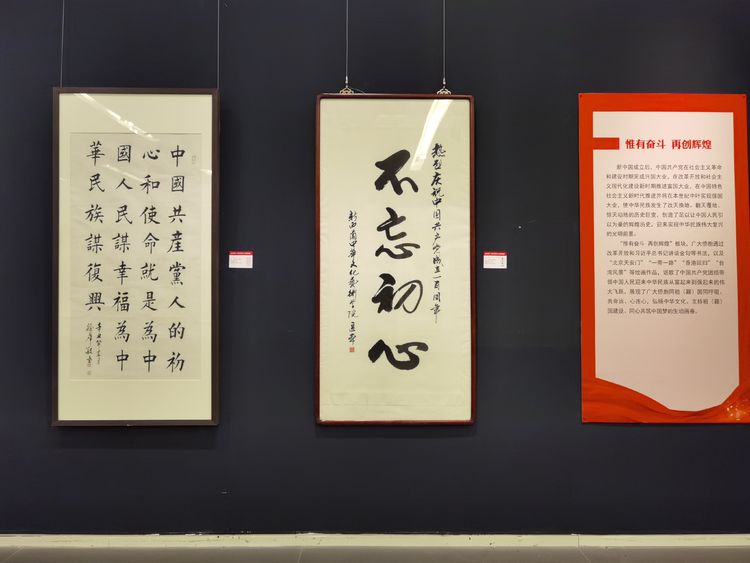 中國共產黨人的初
心和使命就是為中
國人民謀幸福為中
華民族謀復興
热烈庆祝中国共产党成立一百周年
不忘初心
新西蘭中華文化藝術学院
惟有奋斗 再创辉煌
新中国成立后，中国共产党在社会主义革命
和建设时期采成兴国大业，在改革开放和社会主
义现代化建设新时期推进富国大业，在中国特色
社会主义新时代推进并将在本世纪中叶实现强国
大业，使中华民族发生了改天换地、翻天覆地、
惊天动地的历史巨变，创造了足以让中国人民引
以为豪的辉煌历史，迎来实现中华民族伟大复兴
的光明前景。
“惟有奋斗 再创辉煌”板块，广大侨胞通过
改革开放和习近平总书记讲话金句等书法，以及
“北京天安门”“一带一路”“香港回归”“台
湾风景”等绘画作品，讴歌了中国共产党团结带
领中国人民迎来中华民族从富起来到强起来的伟
大飞跃，展现了广大侨胞同祖（籍）国同呼吸、
共命运、心连心，弘扬中华文化，支持祖（籍）
国建设，同心共筑中国梦的生动画卷。